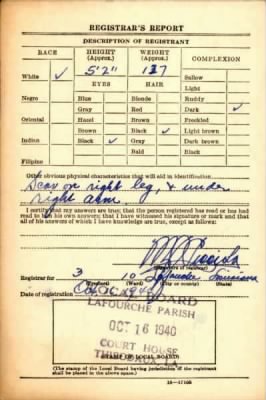 REGISTRAR'S REPORT
DESCRIPTION OF REGISTRANT
RACE HEIGHT (Approx.) WEIGHT (Approx.) COMPLEXION
White ✓ 5'2" 137 Sallow
EYES HAIR Light
Negro Blue Blonde Ruddy
Gray Red Dark ✓
Oriental Hazel Brown Freckled
Brown Black ✓ Light brown
Indian Black ✓ Gray Dark brown
Bald Black
Filipino
Other obvious physical characteristics that will aid in identification
Scar on right leg, & under
right arm
I certify that my answers are true; that the person registered has read or has had
read to him his own answers; that I have witnessed his signature or mark and that
all of his answers of which I have knowledge are true, except as follows:
(Signature of registrar)
Registrar for 3 10 Lafourche Louisiana
Date of registration
LOCAL BOARD
LAFOURCHE PARISH
OCT 16 1940
COURT HOUSE
THIBODAUX, LA
(STAMP OF LOCAL BOARD)
(The stamp of the Local Board having jurisdiction of the registrant
shall be placed in the above space.)